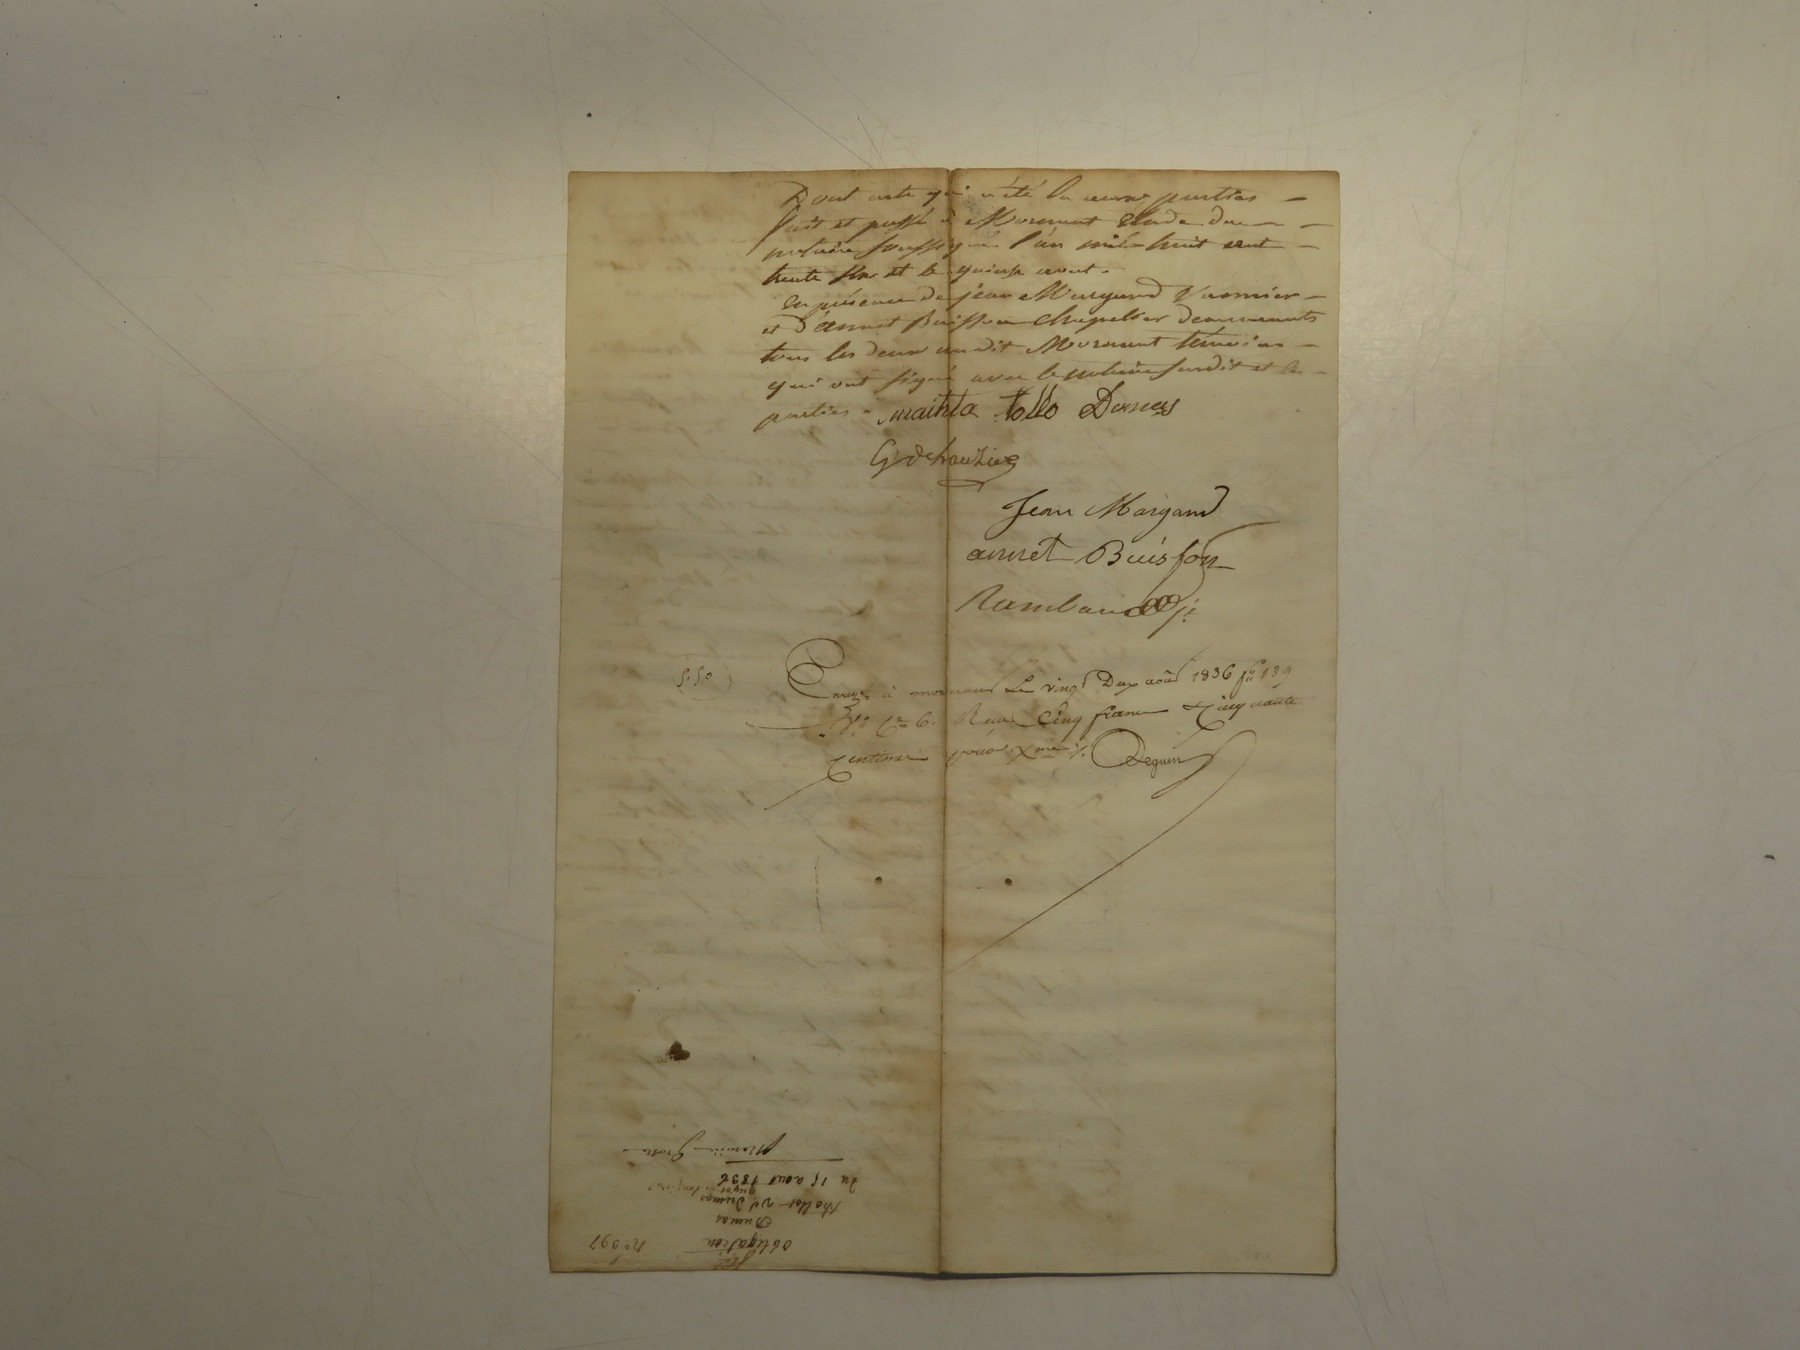 Dont acte qui a été lu aux parties
fait et passé à Mornant Etude du
notaire soussigné l'an mil huit cent
trente six et le quinze aout.
En présence de jean Margand Vannier
et d'annet Buisson chapelier demeurants
tous les deux au dit Mornant témoins
qui ont signé avec le notaire susdit et les
parties. mathta tollo Dumas
Jean Margand
annet Buisson
5.50
Enregé à mornant Le vingt Deux août 1836 fo 139
Vo Ce 6. Reçu Cinq francs Cinquante
Centimes pour Xme %. Deguin
No 397
obligation
Dumas
thollot ve Dumas
Du 15 aout 1836